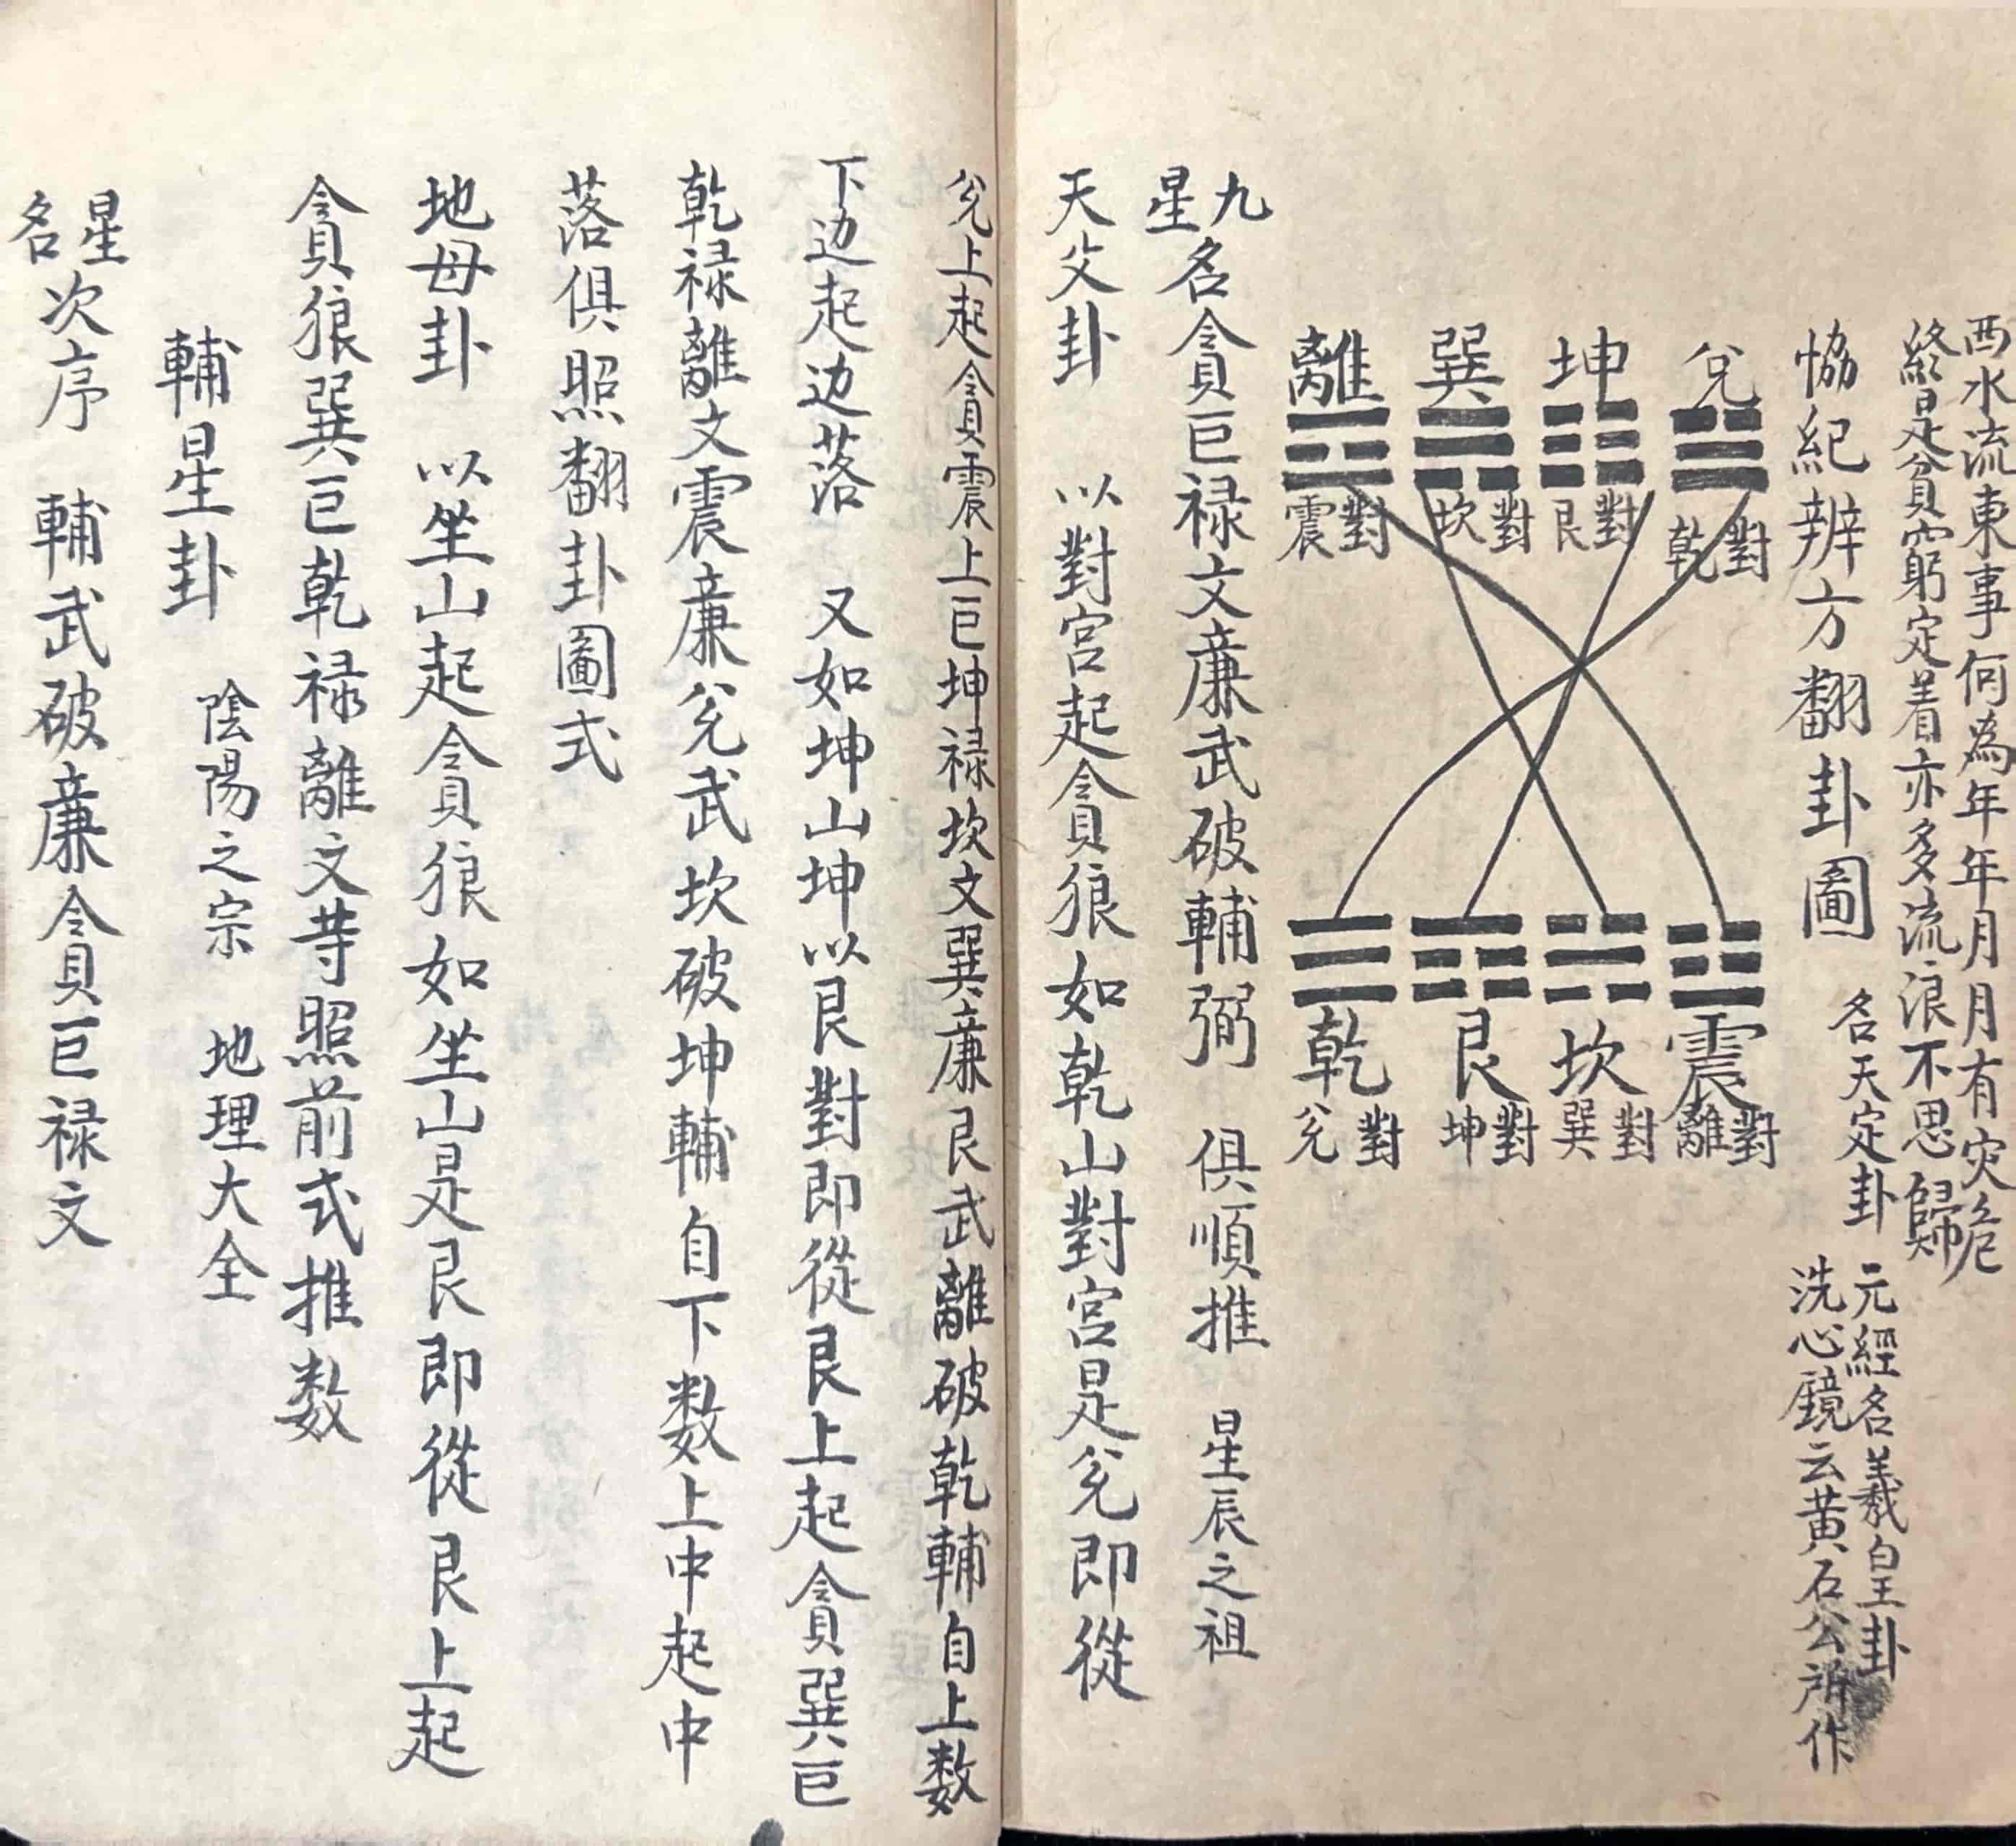 西水流東事何為年年月月有灾危
終是貧窮定着亦多流浪不思歸
協紀辨方翻卦圖 名天定卦
元經名羲皇卦
洗心鏡云黃石公所作
兌 對乾
坤 對艮
巽 對坎
離 對震
震 對離
坎 對巽
艮 對坤
乾 對兌
九星名貪巨禄文廉武破輔弼 俱順推 星辰之祖
天父卦 以對宮起貪狼如乾山對宮是兌即從
兌上起貪震上巨坤禄坎文巽廉艮武離破乾輔自上数
下边起边落 又如坤山坤以艮對即從艮上起貪巽巨
乾禄離文震廉兌武坎破坤輔自下数上中起中
落俱照翻卦圖式
地母卦 以坐山起貪狼如坐山是艮即從艮上起
貪狼巽巨乾禄離文䓁照前式推数
輔星卦 陰陽之宗 地理大全
星名次序 輔武破廉貪巨禄文